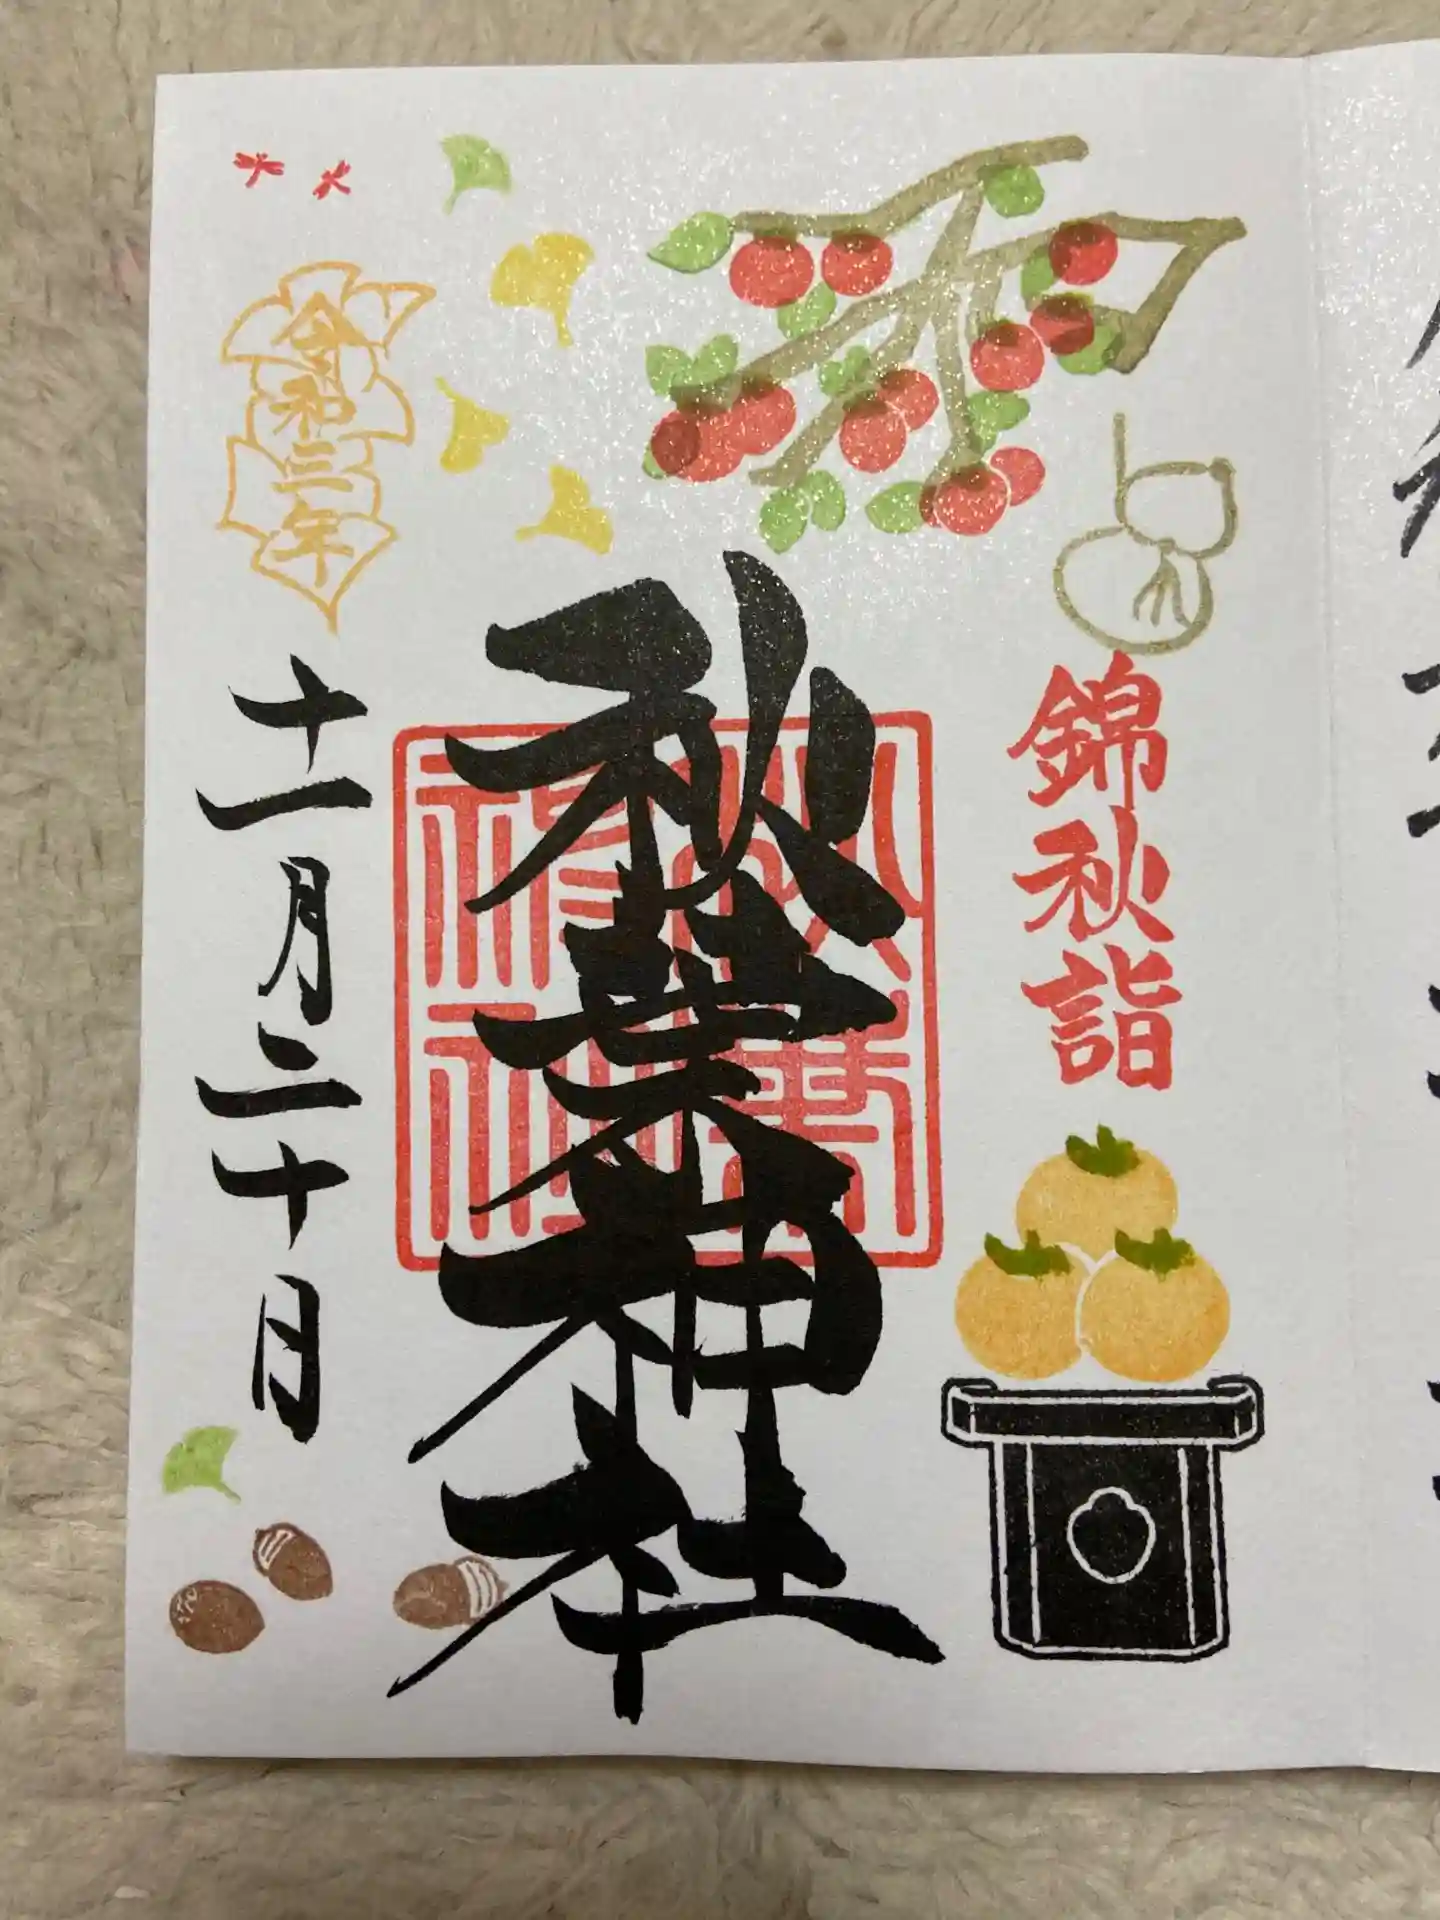 錦秋詣
秋葉神社
令和三年
十一月二十日